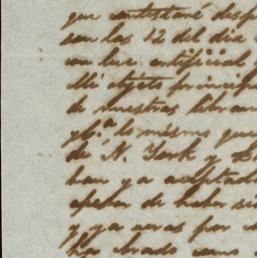 que contestaré desp
son las 12 del dia
con luz artificial
Mi objeto princip
de nuestras libran
y C.ª lo mismo que
de N. York y
han ya aceptad
apesar de haber si
y ya veras por
ha obrado como